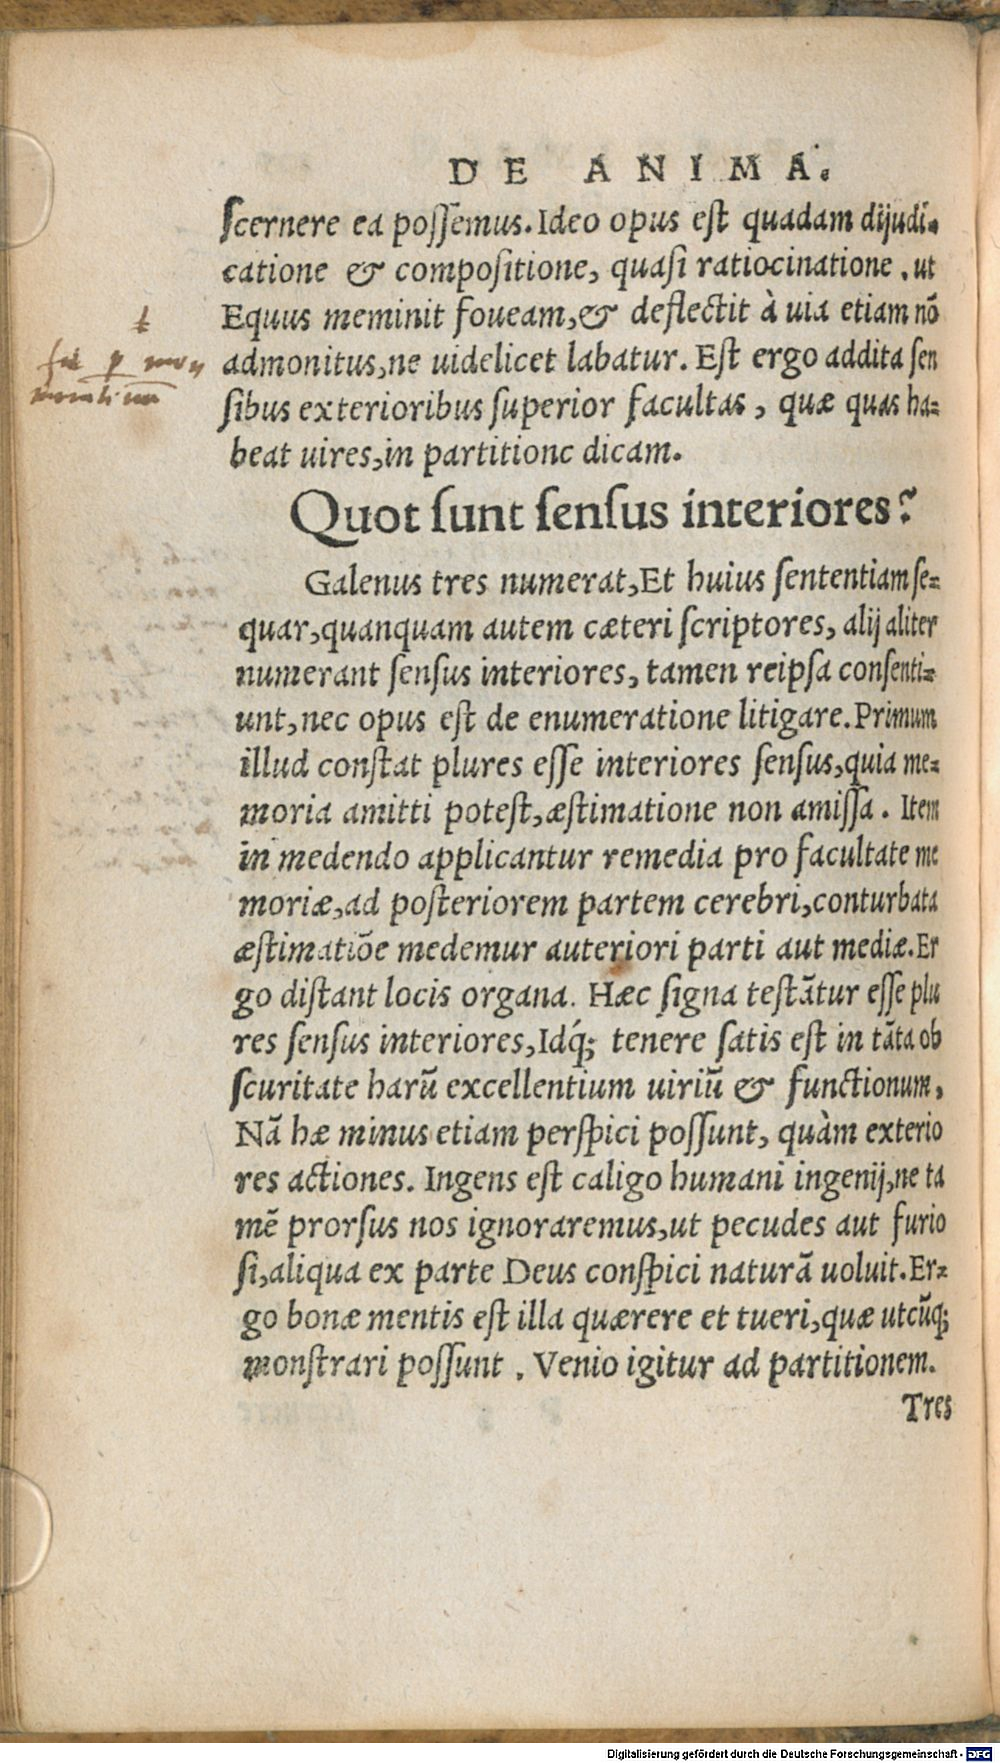 DE ANIMA.
ſcernere ea poſſemus. Ideo opus eſt quadam dijudi-
catione & compoſitione, quaſi ratiocinatione . ut
Equus meminit foueam, & deflectit à uia etiam nō
admonitus, ne uidelicet labatur. Eſt ergo addita ſen
ſibus exterioribus ſuperior facultas , quæ quas ha=
beat uires, in partitionc dicam.
Quot ſunt ſenſus interiores?
Galenus tres numerat, Et huius ſententiam ſe=
quar, quanquam autem cæteri ſcriptores, alij aliter
numerant ſenſus interiores, tamen reipſa conſenti=
unt, nec opus eſt de enumeratione litigare. Primum
illud conſtat plures eſſe interiores ſenſus, quia me=
moria amitti poteſt, æſtimatione non amiſſa . Item
in medendo applicantur remedia pro facultate me
moriæ, ad poſteriorem partem cerebri, conturbata
æſtimatiōe medemur auteriori parti aut mediæ. Er
go diſtant locis organa. Hæc ſigna teſtātur eſſe plu
res ſenſus interiores, Idq́; tenere ſatis eſt in tāta ob
ſcuritate harū excellentium uiriū & functionum,
Nā hæ minus etiam perſpici poſſunt, quàm exterio
res actiones. Ingens eſt caligo humani ingenij, ne ta
mē prorſus nos ignoraremus, ut pecudes aut furio
ſi, aliqua ex parte Deus conſpici naturā uoluit. Er=
go bonæ mentis eſt illa quærere et tueri, quæ utcūq;
monſtrari poſſunt . Venio igitur ad partitionem.
Tres
Digitalisierung gefördert durch die Deutsche Forschungsgemeinschaft - DFG